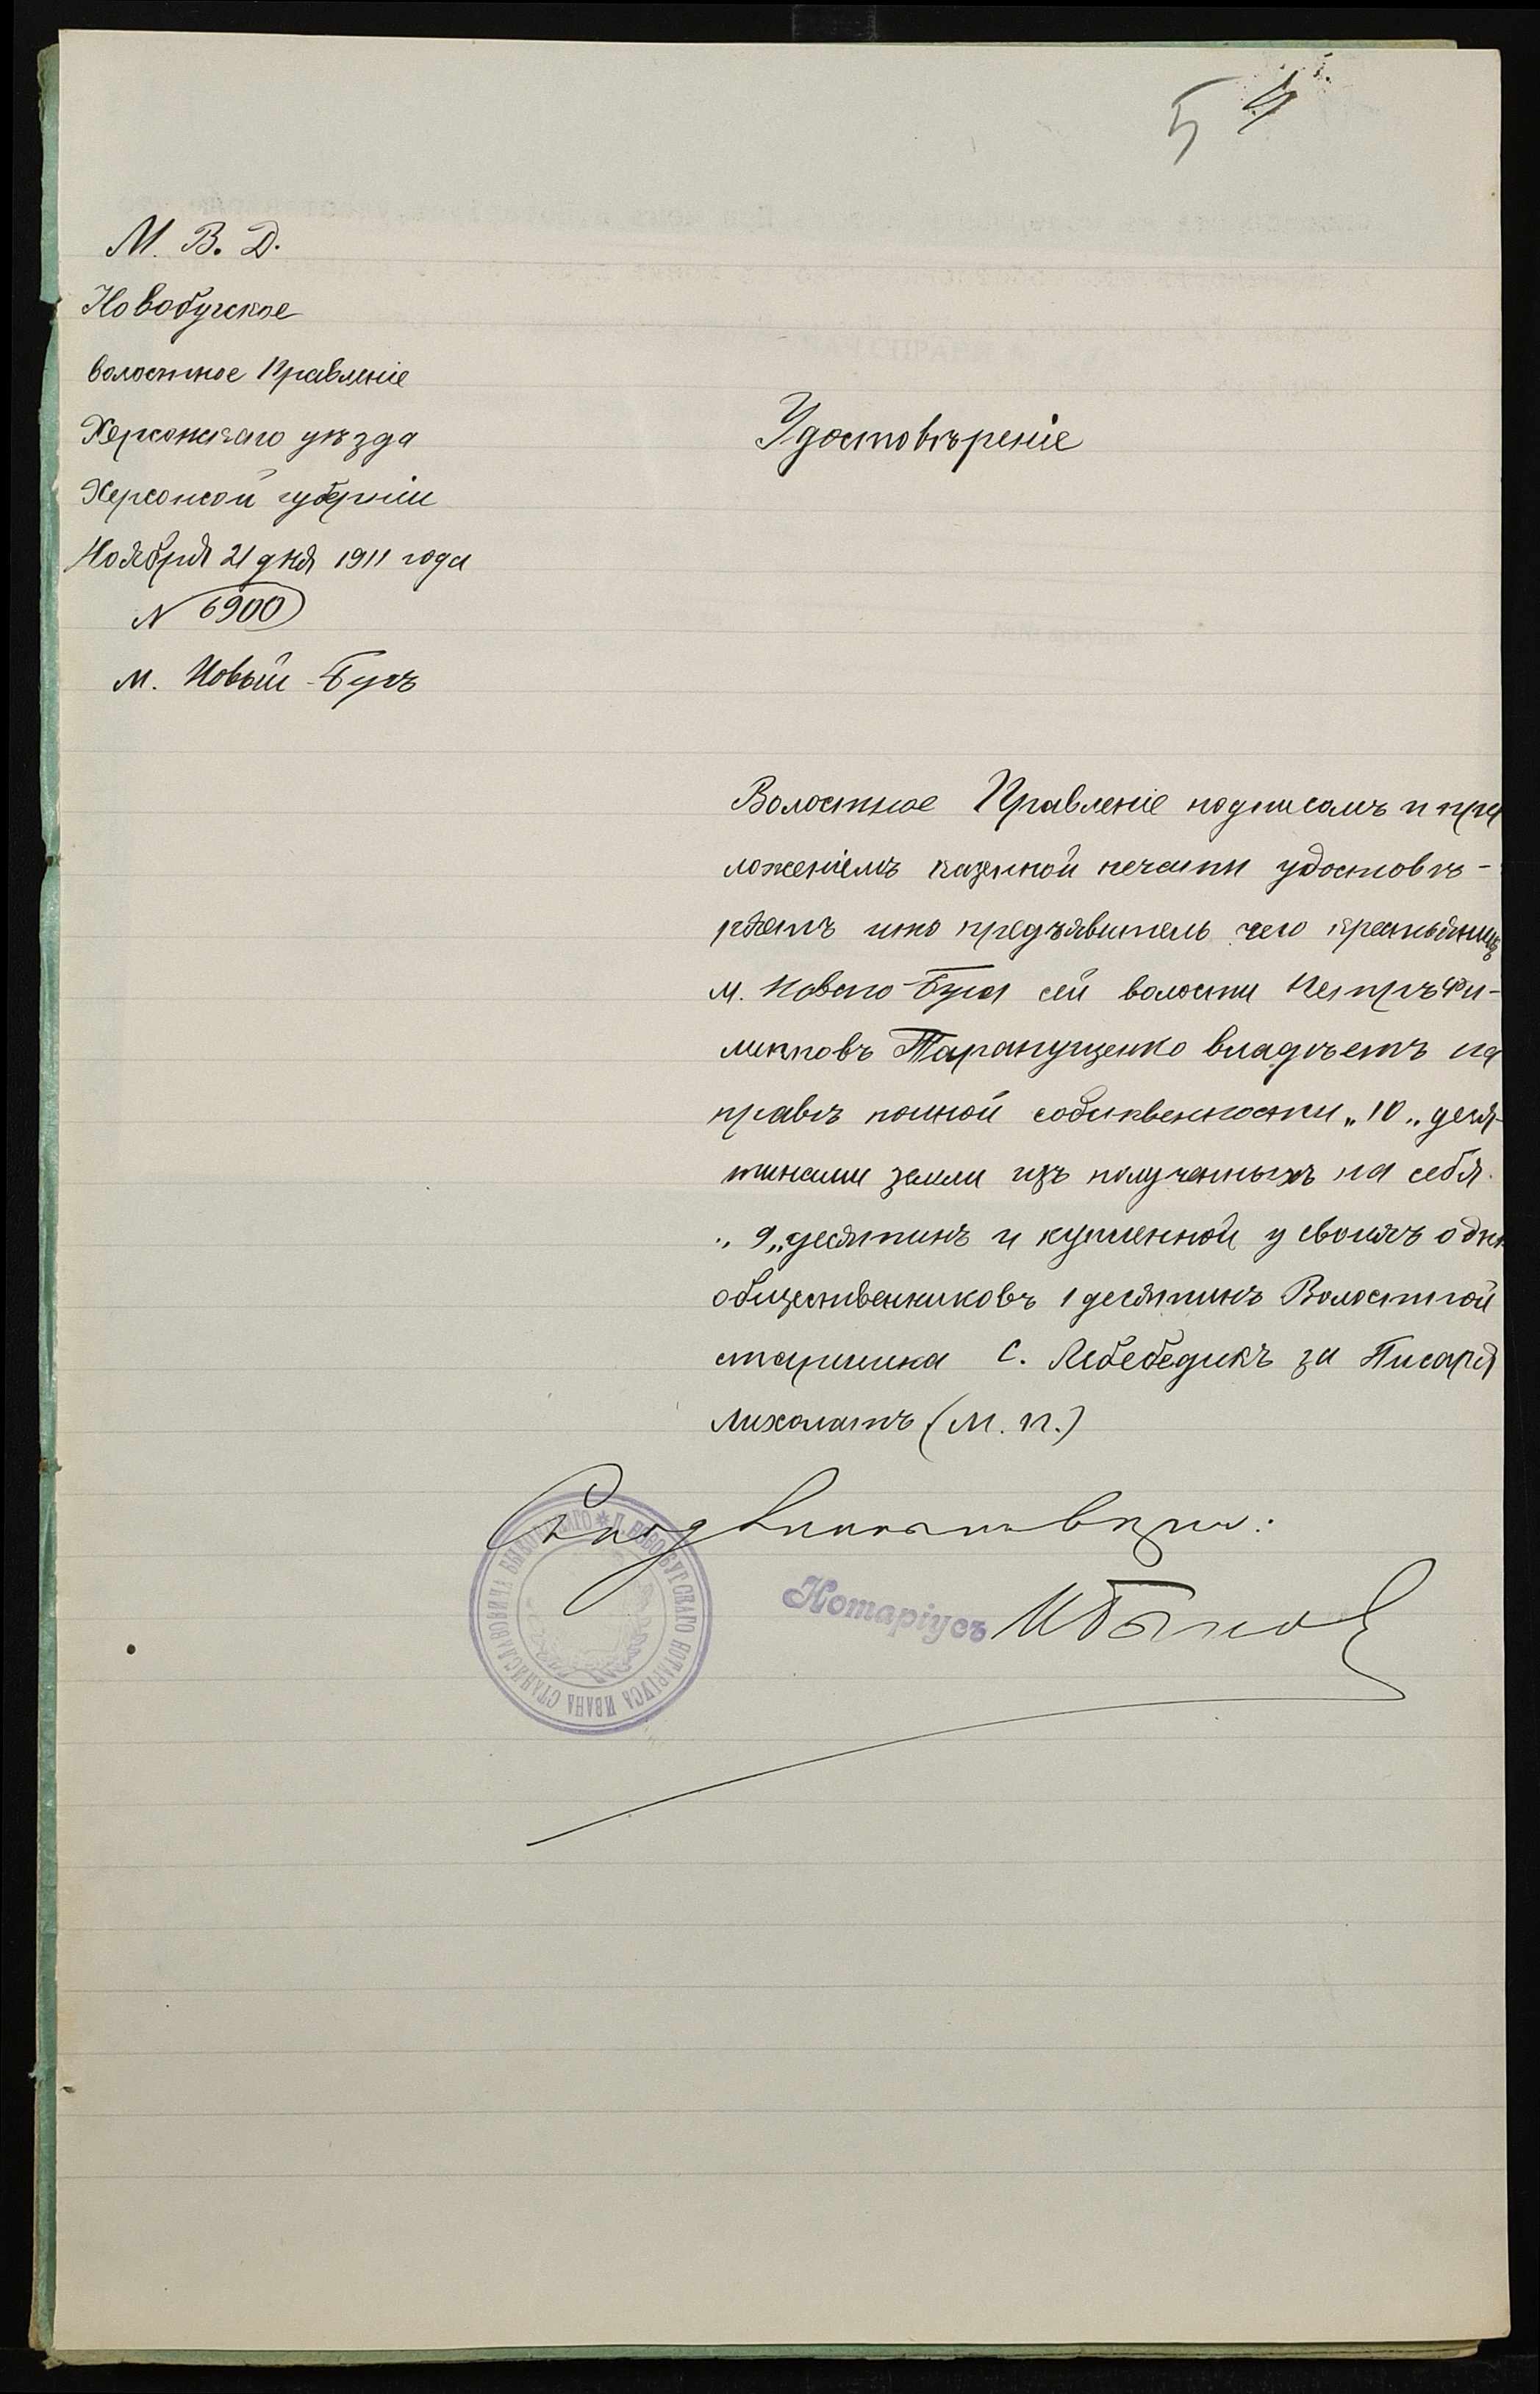 5 4
М. В. Д.
Новобугское
волостное Правленіе
Херсонскаго уѣзда
Херсонсой губерніи
Ноября 21 дня 1911 года
N 6900
м. Новый-Бугъ
Удостовѣреніе
Волостное Правленіе подписомъ и при
ложеніемъ казенной печати удостовѣ-
ряетъ что предъявитель чего крестьянинъ
м. Новаго-Буга сей волости Петръ Фи-
липповъ Таранущенко владѣетъ на
правѣ полной собственности „10„ деся-
тинами земли изъ полученныхъ на себя
„9„ десятинъ и купленной у своихъ одно
общественниковъ 1 десятинъ Волостной
старшина С. Лебебедикъ за Писаря
Лихолатъ (М. П.)
Нотаріусъ
* Н. НОВОБУГСКАГО НОТАРІУСА ИВАНА СТАНИСЛАВОВИЧА